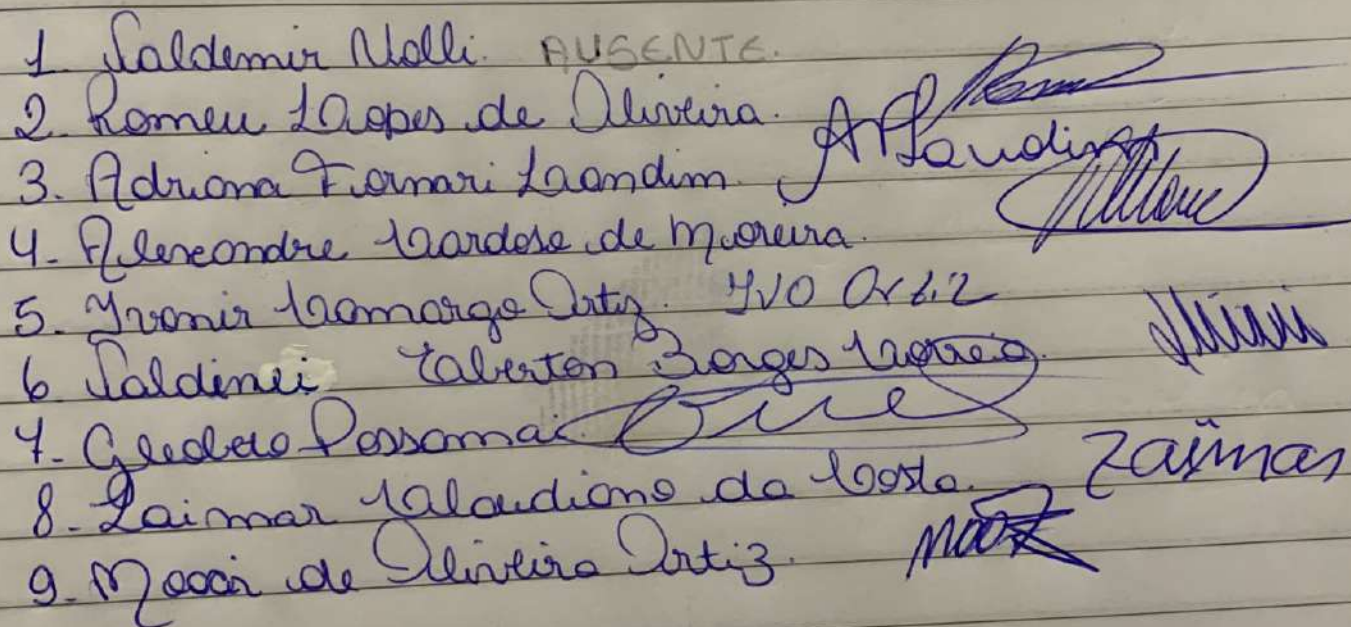 1. Valdemir Nolli. AUSENTE.
2. Romeu Lopes de Oliveira.
3. Adriana Fornari Landim. APLandim
4. Alexandre Cardoso de Moreira.
5. Ivonir Camargo Ortiz. IVO Ortiz
6. Valdinei Caberton Borges Correa.
7. Gledeto Possamai
8. Zaimar Claudiano da Costa. Zaimar
9. Moacir de Oliveira Ortiz.